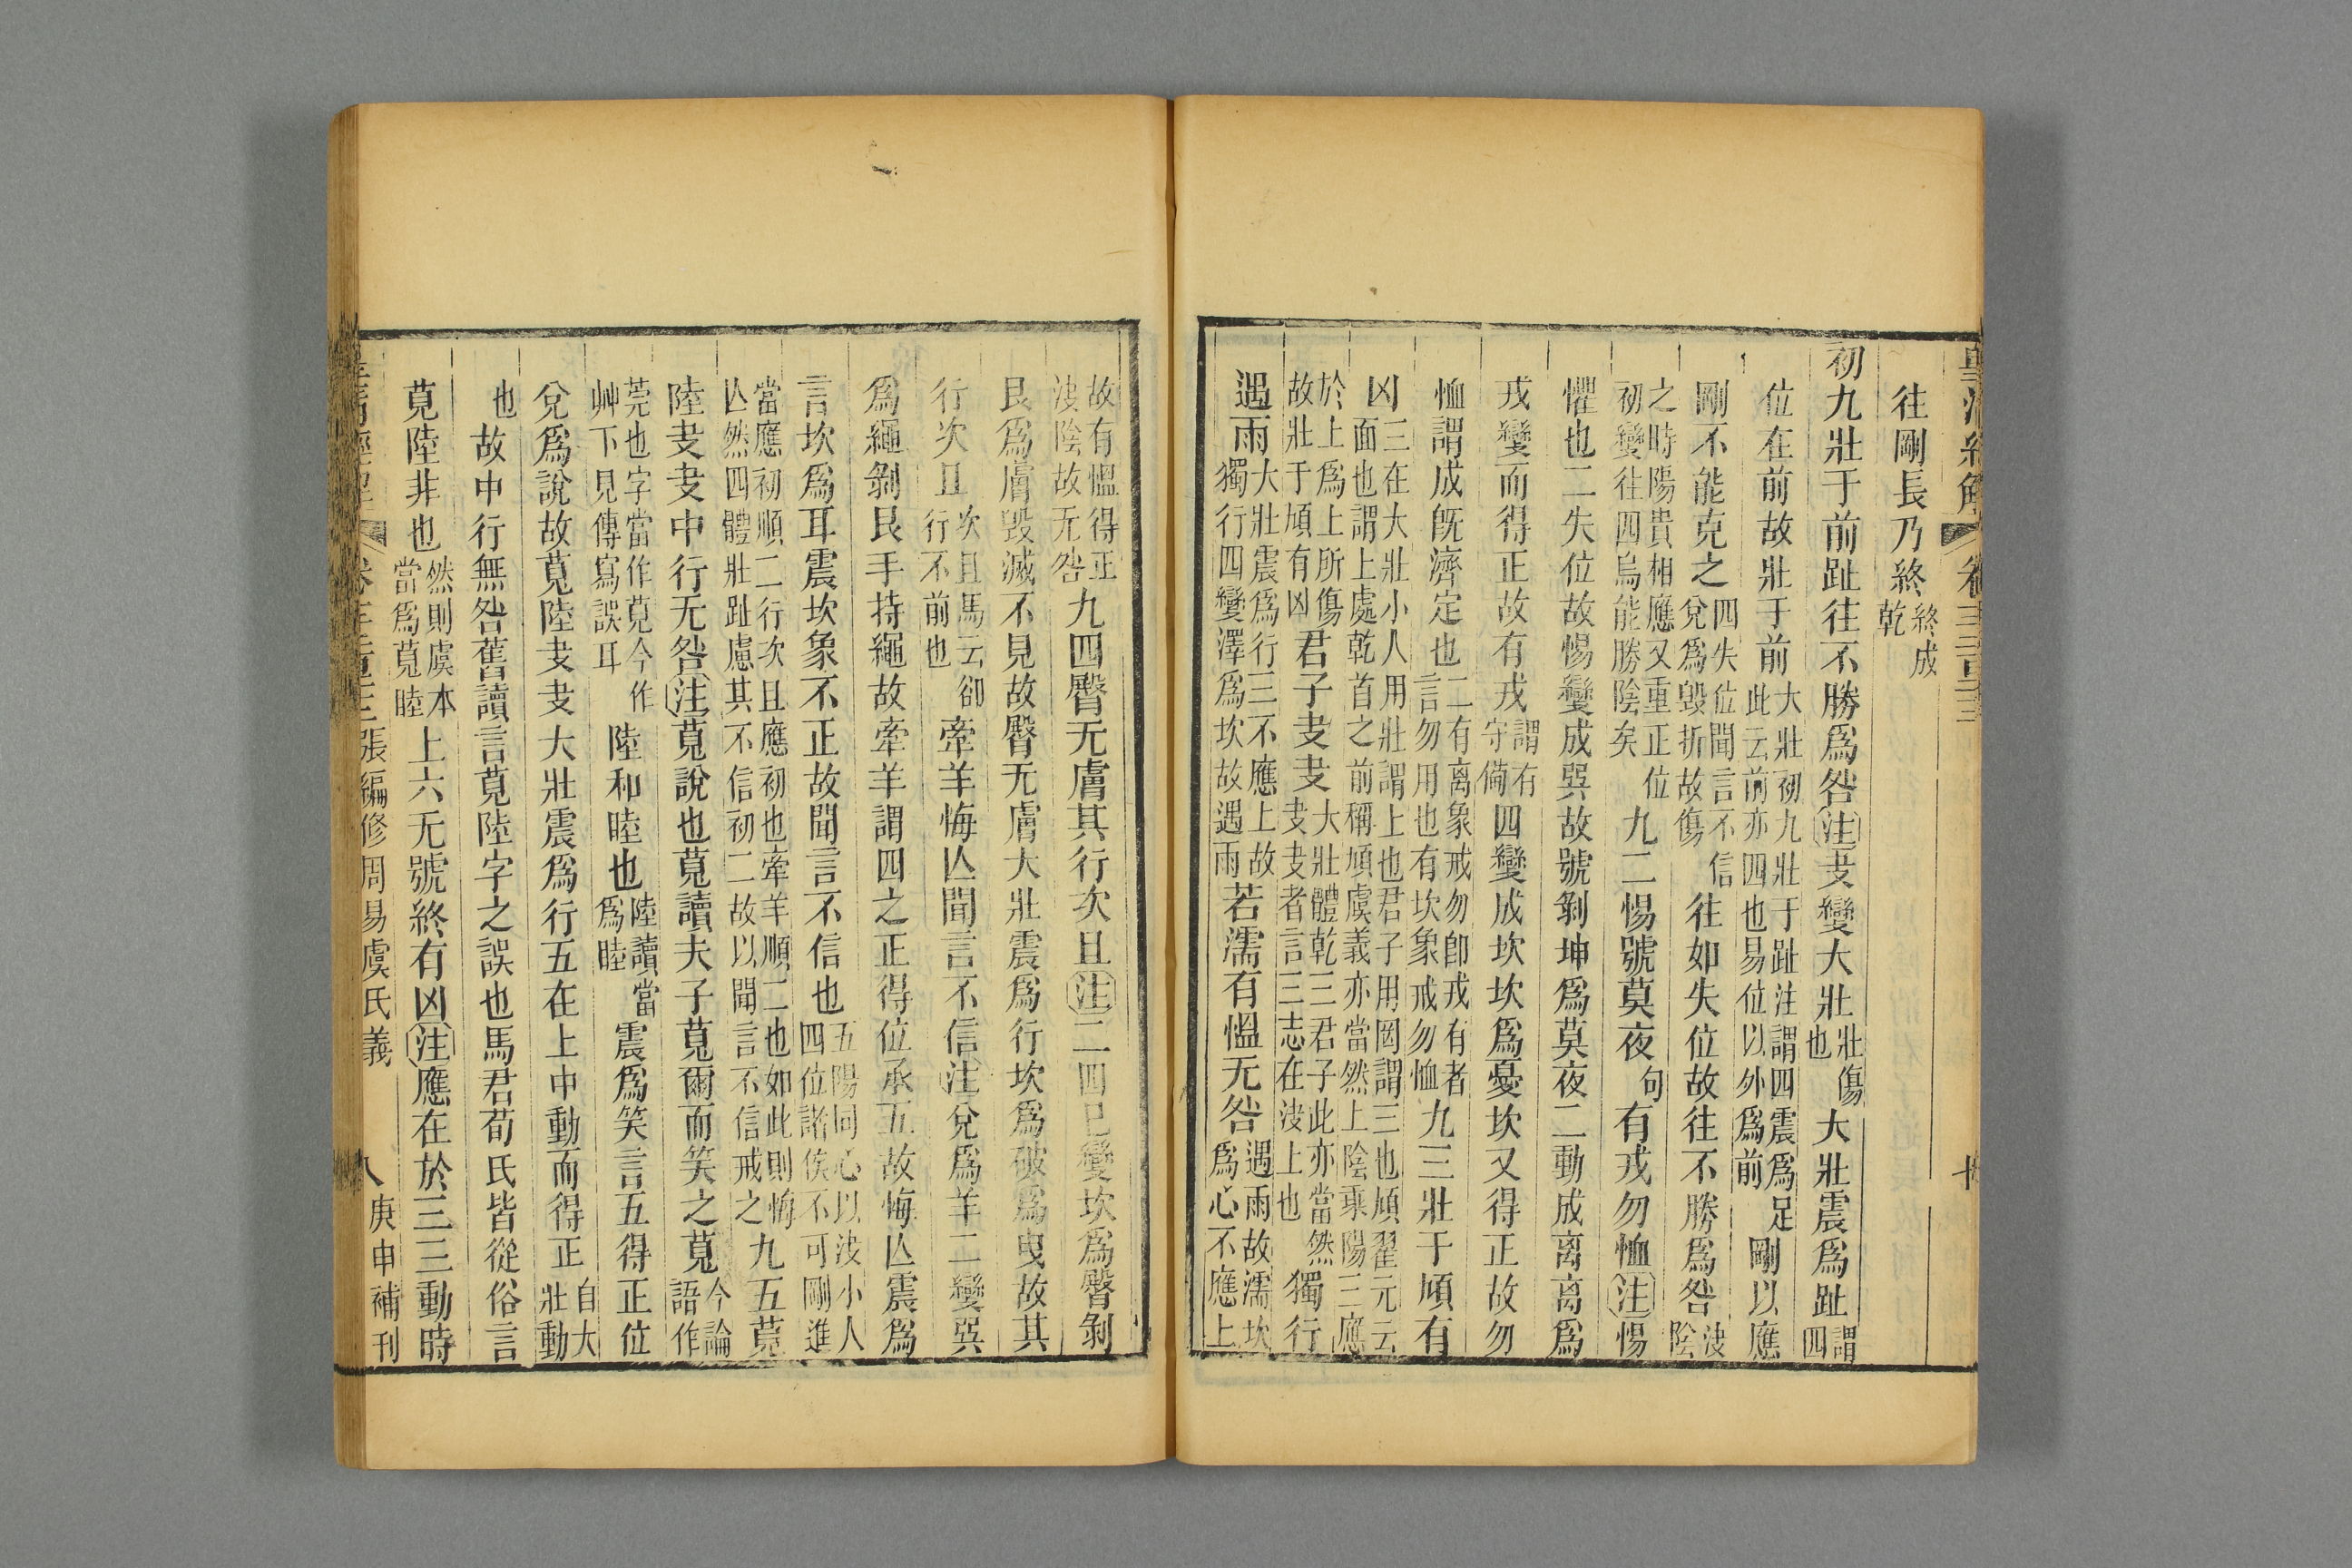 往剛長乃終終成乾
初九壯于前趾往不勝爲咎注夬變大壯壯傷也大壯震爲趾謂四
位在前故壯于前大壯初九壯于趾注謂四震爲足此云前亦四也易位以外爲前剛以應
剛不能克之四失位聞言不信兌爲毀折故傷往如失位故往不勝爲咎決陰
之時陽貴相應又重正位初變往四烏能勝陰矣九二惕號莫夜句有戎勿恤注惕
懼也二失位故惕變成巽故號剝坤爲莫夜二動成离离爲
戎變而得正故有戎謂有守備四變成坎坎爲憂坎又得正故勿
恤謂成旣濟定也二有离象戒勿卽戎有者言勿用也有坎象戒勿恤九三壯于頄有
凶三在大壯小人用壯謂上也君子用罔謂三也頄翟元云面也謂上處乾首之前稱頄虞義亦當然上陰乘陽三應
於上爲上所傷故壯于頄有凶君子夬夬大壯體乾三君子此亦當然夬夬者言三志在決上也獨行
遇雨大壯震爲行三不應上故獨行四變澤爲坎故遇雨若濡有慍无咎遇雨故濡坎爲心不應上
故有慍得正決陰故无咎九四臀无膚其行次且注二四已變坎爲臀剝
艮爲膚毀滅不見故臀无膚大壯震爲行坎爲破爲曳故其
行次且次且馬云卻行不前也牽羊悔亾聞言不信注兌爲羊二變巽
爲繩剝艮手持繩故牽羊謂四之正得位承五故悔亾震爲
言坎爲耳震坎象不正故聞言不信也五陽同心以決小人四位諸侯不可剛進
當應初順二行次且應初也牽羊順二也如此則悔亾然四體壯趾慮其不信初二故以聞言不信戒之九五莧
陸夬夬中行无咎注莧說也莧讀夫子莧爾而笑之莧今論語作
莞也字當作莧今作艸下見傳寫誤耳陸和睦也陸讀當爲睦震爲笑言五得正位
兌爲說故莧陸夬夬大壯震爲行五在上中動而得正自大壯動
也故中行無咎舊讀言莧陸字之誤也馬君荀氏皆從俗言
莧陸非也然則虞本當爲莧睦上六无號終有凶注應在於三三動時
張編修周易虞氏義
八
庚申補刊